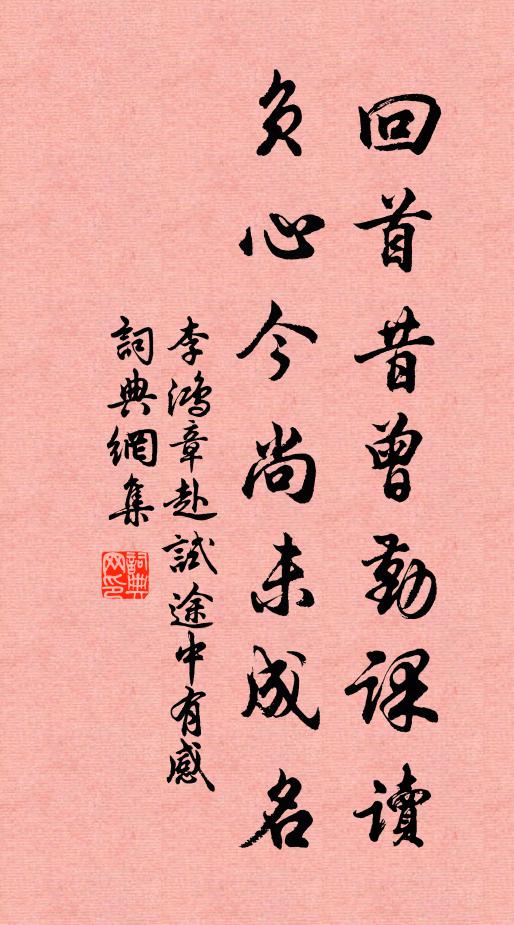 回首昔曾勤課讀
負心今尚未成名
李鴻章赴試途中有感
詞典網集
詞典
网印